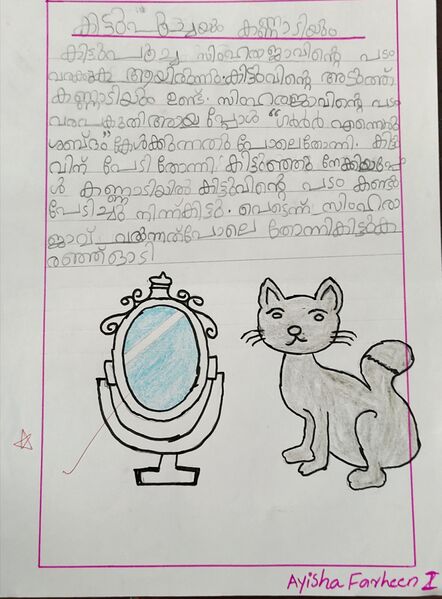 കിട്ടുപൂച്ചയും കണ്ണാടിയും
കിട്ടുപൂച്ച സിംഹരാജാവിന്റെ പടം
വരക്കുക ആയിരുന്നു.കിട്ടുവിന്റെ അടുത്ത്
കണ്ണാടിയും ഉണ്ട്. സിംഹരാജാവിന്റെ പടം
വരപകുതി ആയപ്പോൾ "ഗർർർ എന്നൊരു
ശബ്ദം" കേൾക്കുന്നത് പോലെതോന്നി. കിട്ടു
വിന് പേടി തോന്നി. കിട്ടു നോക്കിയപ്പോ
ൾ കണ്ണാടിയിൽ കിട്ടുവിന്റെ പടം കണ്ട്
പേടിച്ചു നിന്ന്കിട്ടു. പെട്ടെന്ന് സിംഹരാ
ജാവ് വരുന്നത്പോലെ തോന്നികിട്ടുക
രഞ്ഞ്ഓടി
Ayisha Farheen I